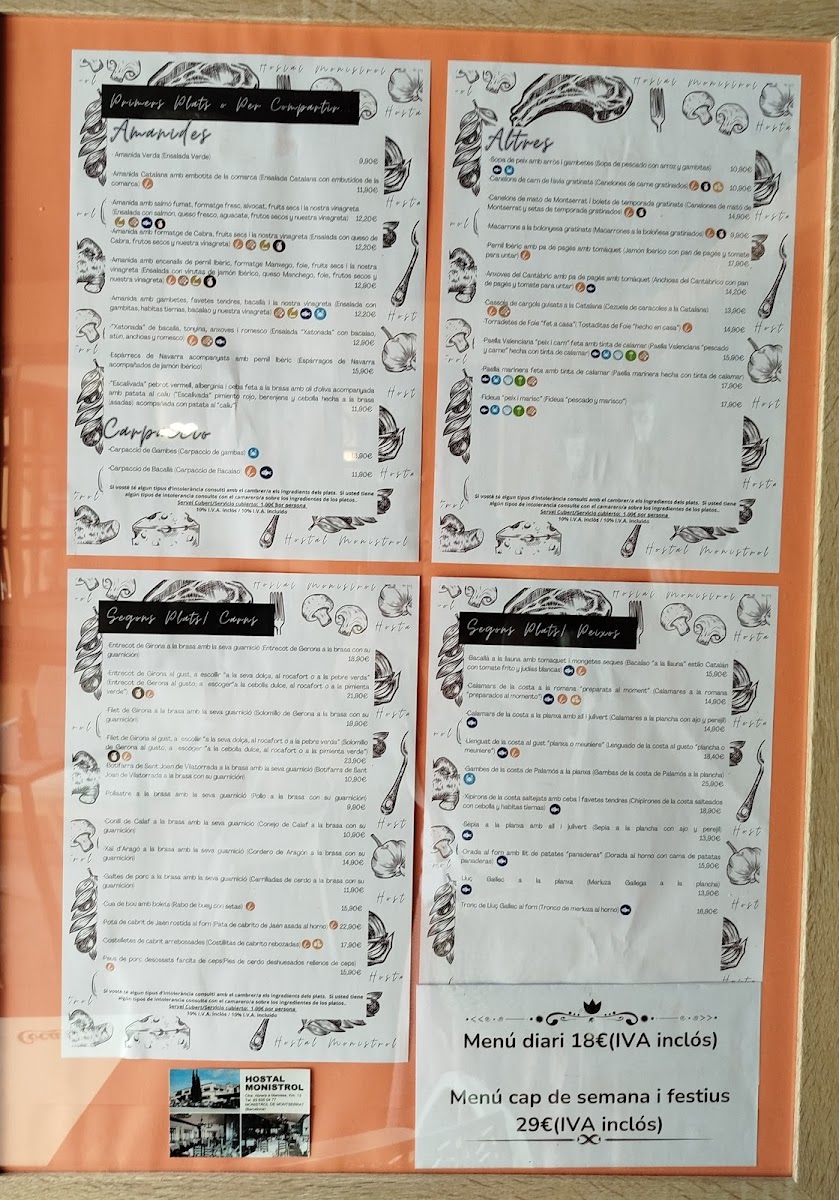 Hostal Monistrol
Primers Plats o Per Compartir
Amanides
·Amanida Verda (Ensalada Verde)
9,90€
Amanida Catalana amb embotits de la comarca (Ensalada Catalana con embutidos de la
comarca)
11,90€
·Amanida amb salmó fumat, formatge fresc, alvocat, fruits secs i la nostra vinagreta
(Ensalada con salmón, queso fresco, aguacate, frutos secos y nuestra vinagreta) 12,20€
·Amanida amb formatge de Cabra, fruits secs i la nostra vinagreta (Ensalada con queso de
Cabra, frutos secos y nuestra vinagreta)
12,20€
·Amanida amb encenalls de pernil Ibèric, formatge Manxego, foie, fruita seca i la nostra
vinagreta (Ensalada con virutas de jamón Ibérico, queso Manchego, foie, frutos secos y
nuestra vinagreta)
12,90€
·Amanida amb gambetes, favetes tendres, bacallà i la nostra vinagreta (Ensalada con
gambitas, habitas tiernas, bacalao y nuestra vinagreta)
12,20€
·"Xatonada" de bacallà, tonyina, anxoves i romesco (Ensalada "Xatonada" con bacalao,
atún, anchoas y romesco)
12,90€
·Espàrrecs de Navarra acompanyats amb pernil Ibèric (Espárragos de Navarra
acompañados de jamón Ibérico)
15,90€
·"Escalivada" pebrot vermell, albergínia i ceba feta a la brasa amb oli d'oliva acompanyada
amb patata al caliu ("Escalivada" pimiento rojo, berenjena y cebolla hecha a la brasa
(asadas) acompañada con patata al "caliu")
11,90€
Carpaccio
·Carpaccio de Gambes (Carpaccio de gambas)
·Carpaccio de Bacallà (Carpaccio de Bacalao)
11,90€
Si vostè té algun tipus d'intolerància consulti amb el cambrer/a els ingredients dels plats. Si usted tiene
algún tipos de intolerancia consulte con el camarero/a sobre los ingredientes de los platos..
Servei Cubert/Servicio cubierto: 1,00€ por persona
10% I.V.A. inclòs / 10% I.V.A. incluido
Hostal Monistrol
Hostal Monistrol
Altres
·Sopa de peix amb arròs i gambetes (Sopa de pescado con arroz y gambitas) 10,90€
·Canelons de carn de l'àvia gratinats (Canelones de carne gratinados) 10,90€
·Canelons de mató de Montserrat i bolets de temporada gratinats (Canelones de mató de
Montserrat y setas de temporada gratinados)
14,90€
·Macarrons a la bolonyesa gratinats (Macarrones a la boloñesa gratinados) 9,90€
·Pernil Ibèric amb pa de pagès amb tomàquet (Jamón Ibérico con pan de pagés y tomate
para untar)
17,90€
·Anxoves del Cantàbric amb pa de pagès amb tomàquet (Anchoas del Cantábrico con pan
de pagés y tomate para untar)
14,20€
·Cassola de cargols guisats a la Catalana (Cazuela de caracoles a la Catalana) 13,90€
·Torradetes de Foie "fet a casa"( Tostaditas de Foie "hecho en casa") 14,90€
·Paella Valenciana "peix i carn" feta amb tinta de calamar (Paella Valenciana "pescado
y carne" hecha con tinta de calamar)
15,90€
·Paella marinera feta amb tinta de calamar (Paella marinera hecha con tinta de calamar)
17,90€
·Fideuà "peix i marisc" (Fideua "pescado y marisco")
17,90€
Si vostè té algun tipus d'intolerància consulti amb el cambrer/a els ingredients dels plats. Si usted tiene
algún tipos de intolerancia consulte con el camarero/a sobre los ingredientes de los platos..
Servei Cubert/Servicio cubierto: 1,00€ por persona
10% I.V.A. inclòs / 10% I.V.A. incluido
Hostal Monistrol
Hostal Monistrol
Segons Plats/ Carns
·Entrecot de Girona a la brasa amb la seva guarnició (Entrecot de Gerona a la brasa con su
guarnición)
18,90€
·Entrecot de Girona al gust, a escollir "a la seva dolça, al rocafort o a la pebre verda"
(Entrecot de Gerona al gusto, a escoger"a la cebolla dulce, al rocafort o a la pimienta
verde")
21,90€
·Filet de Girona a la brasa amb la seva guarnició (Solomillo de Gerona a la brasa con su
guarnición)
19,90€
·Filet de Girona al gust, a escollir "a la seva dolça, al rocafort o a la pebre verda" (Solomillo
de Gerona al gusto, a escoger "a la cebolla dulce, al rocafort o a la pimienta verde")
23,90€
·Botifarra de Sant Joan de Vilatorrada a la brasa amb la seva guarnició (Botifarra de Sant
Joan de Vilatorrada a la brasa con su guarnición)
10,90€
·Pollastre a la brasa amb la seva guarnició (Pollo a la brasa con su guarnición)
9,80€
·Conill de Calaf a la brasa amb la seva guarnició (Conejo de Calaf a la brasa con su
guarnición)
10,90€
·Xai d'Aragó a la brasa amb la seva guarnició (Cordero de Aragón a la brasa con su
guarnición)
14,90€
·Galtes de porc a la brasa amb la seva guarnició (Carrilladas de cerdo a la brasa con su
guarnición)
11,90€
·Cua de bou amb bolets (Rabo de buey con setas)
15,90€
·Pota de cabrit de Jaen rostida al forn (Pata de cabrito de Jaén asada al horno) 22,90€
·Costelletes de cabrit arrebossades (Costillitas de cabrito rebozadas) 17,90€
·Peus de porc desossats farcits de ceps(Pies de cerdo deshuesados rellenos de ceps)
15,90€
Si vostè té algun tipus d'intolerància consulti amb el cambrer/a els ingredients dels plats. Si usted tiene
algún tipos de intolerancia consulte con el camarero/a sobre los ingredientes de los platos..
Servei Cubert/Servicio cubierto: 1,00€ por persona
10% I.V.A. inclòs / 10% I.V.A. incluido
Hostal Monistrol
Hostal Monistrol
Segons Plats/ Peixos
·Bacallà a la llauna amb tomaquet i mongetes seques (Bacalao "a la llauna" estilo Catalán
con tomate frito y judías blancas)
15,90€
·Calamars de la costa a la romana "preparats al moment" (Calamares a la romana
"preparados al momento")
14,90€
·Calamars de la costa a la planxa amb all i julivert (Calamares a la plancha con ajo y perejil)
14,90€
·Llenguat de la costa al gust "planxa o meuniere" (Lenguado de la costa al gusto "plancha o
meuniere")
18,40€
·Gambes de la costa de Palamós a la planxa (Gambas de la costa de Palamós a la plancha)
25,90€
·Xipirons de la costa saltejats amb ceba i favetes tendres (Chipirones de la costa salteados
con cebolla y habitas tiernas)
18,90€
·Sèpia a la planxa amb all i julivert (Sepia a la plancha con ajo y perejil)
13,90€
·Orada al forn amb llit de patates "panaderas" (Dorada al horno con cama de patatas
panaderas)
15,90€
·Lluç Gallec a la planxa (Merluza Gallega a la plancha)
13,90€
·Tronc de Lluç Gallec al forn (Tronco de merluza al horno)
18,90€
Menú diari 18€(IVA inclós)
Menú cap de semana i festius
29€(IVA inclós)
HOSTAL
MONISTROL
MONISTROL DE MONTSERRAT
(Barcelona)